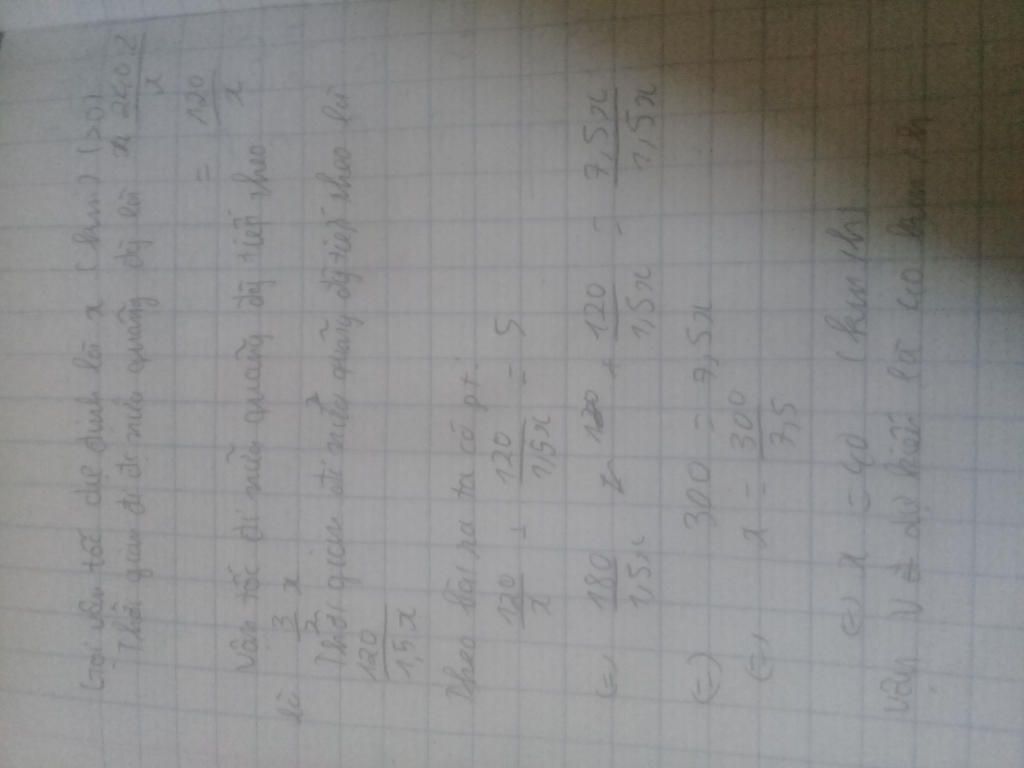 Gọi vận tốc dự định là x (km) (>0)
Thời gian đi nửa quãng đg là x 240:2/x
= 120/x
Vận tốc đi nửa quãng đg tiếp theo
là 3/2 x
Thời gian đi nửa quãng đg tiếp theo là
120/1,5x
Theo bài ra ta có pt:
120/x + 120/1,5x = 5
(=) 180/1,5x + 120/1,5x = 7,5x/1,5x
(=) 300 = 7,5x
(=) x = 300/7,5
(=) x = 40 (km/h)
Vậy v dự kiến là 40 km/h